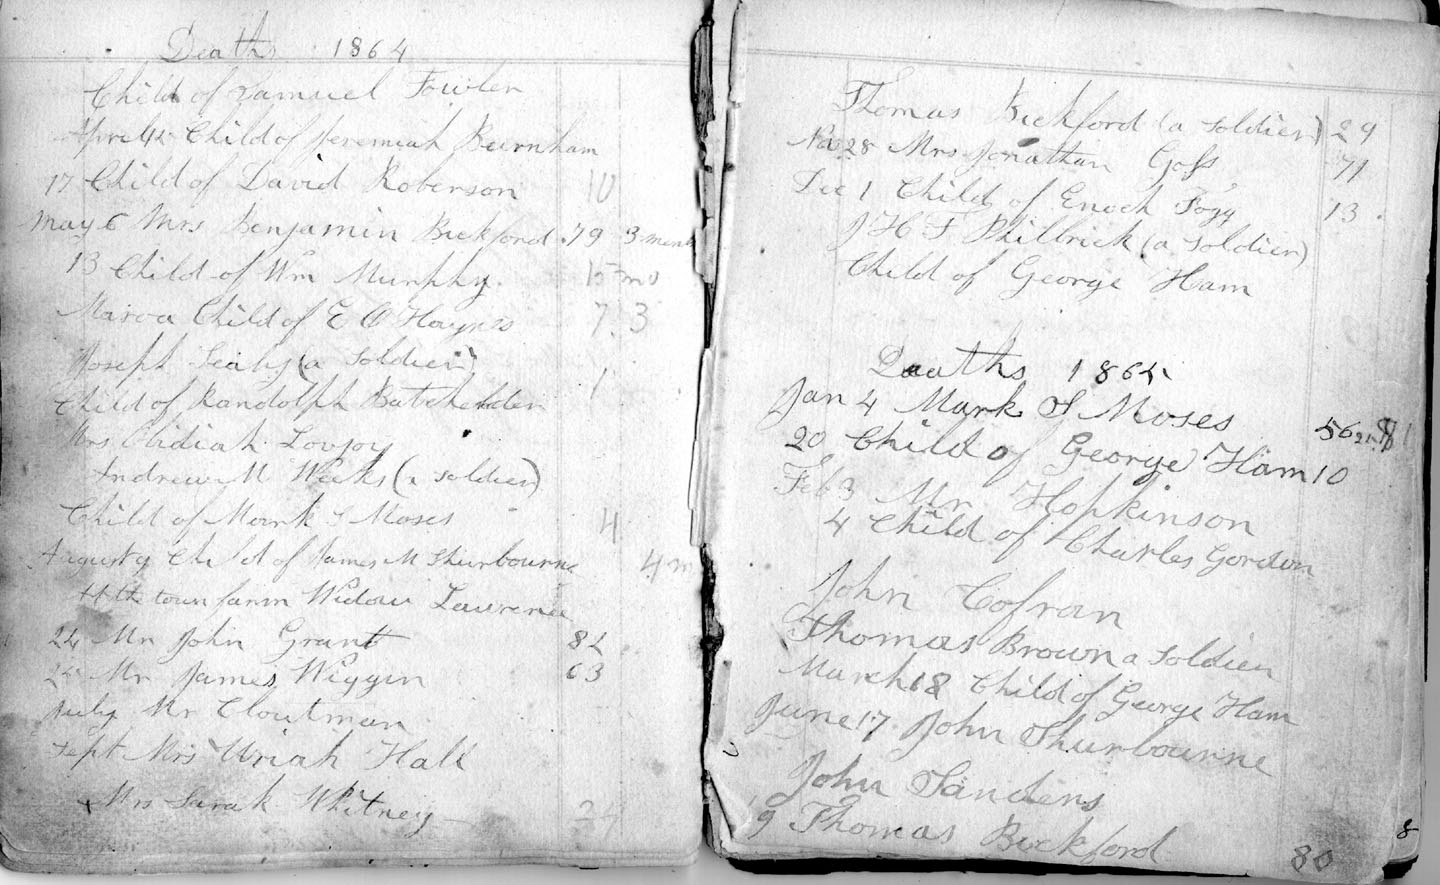 Deaths 1864
Child of Samuel Fowler
April Child of Jeremiah Burnham
17 Child of David Roberson 10
May 6 Mrs Benjamin Bickford 79 3 month
13 Child of Wm Murphy 15 mo
Child of E O Haynes 7 3
Joseph (a Soldier)
Child of Randolph Batchelder
Mrs Lovjoy
Andrew M Weeks (a soldier)
Child of Mark S Moses 4
August 9 Child of James M Shurbourne 4 m
At the town farm Widow Lawrence
24 Mr John Grant 82
25 Mr James Wiggin 63
July Mr Cloutman
Sept Mrs Uriah Hall
Mrs Sarah Whitney 24
Thomas Bickford (a Soldier) 29
Nov 28 Mrs Jonathan Goss 71
Dec 1 Child of Enoch Fogg 13
J H F Philbrick (a Soldier)
Child of George Ham
Deaths 1865
Jan 4 Mark S Moses 56
20 Child of George Ham 10
Feb 3 Mr Hopkinson
4 Child of Charles Gordon
John Cofran
Thomas Brown a Soldier
March 18 Child of George Ham
June 17 John Shurbourne
John Sanders
19 Thomas Bickford 80
8